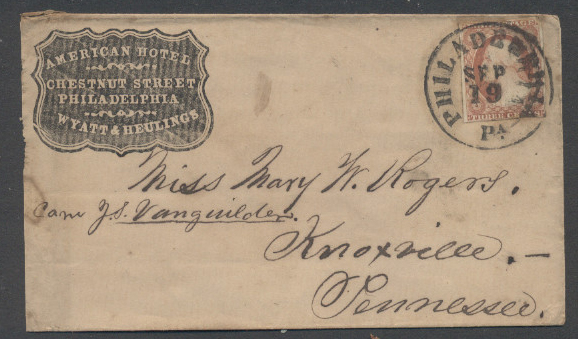 AMERICAN HOTEL
CHESTNUT STREET
PHILADELPHIA
WYATT & HEULINGS
PHILADELPHIA
SEP
19
PA
THREE CENTS
Miss Mary W. Rogers.
Care J.S. Vanguilder.
Knoxville. —
Tennessee.